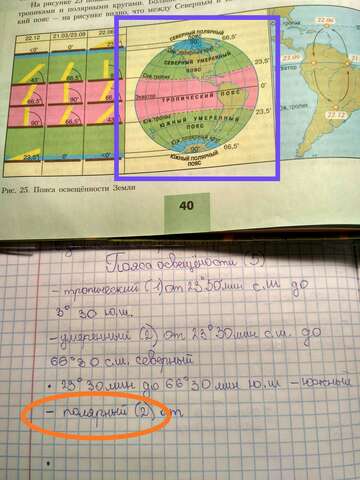 На рисунке 25 пока
тропиками и полярными кругами. Больш
кий пояс — на рисунке видно, что между Северным и
22.12
21.03/23.09
22.06
<0°
0°
43°
66,5°
66,5°
90°
90°
66,5°
43°
23,5°
0°
СЕВЕРНЫЙ ПОЛЯРНЫЙ
ПОЯС
СЕВЕРНЫЙ УМЕРЕННЫЙ
ПОЯС
66,5°
Сев. тропик
23,5°
ТРОПИЧЕСКИЙ ПОЯС
Экватор
0°
Юж. тропик
ЮЖНЫЙ УМЕРЕННЫЙ
ПОЯС
23,5°
Юж. полярный круг
90°
66,5°
ЮЖНЫЙ ПОЛЯРНЫЙ
ПОЯС
Сев. тропик
22.06
Экватор
Юж. тропик
22.12
Рис. 25. Пояса освещённости Земли
40
Пояса освещёности (5)
- тропический (1) от 23°30 мин с.ш. до
3° 30 ю.ш.
- умеренный (2) от 23°30 мин с.ш. до
66°30 с.ш. северный
• 23°30 мин до 66°30 мин ю.ш - южный
- полярный (2) от